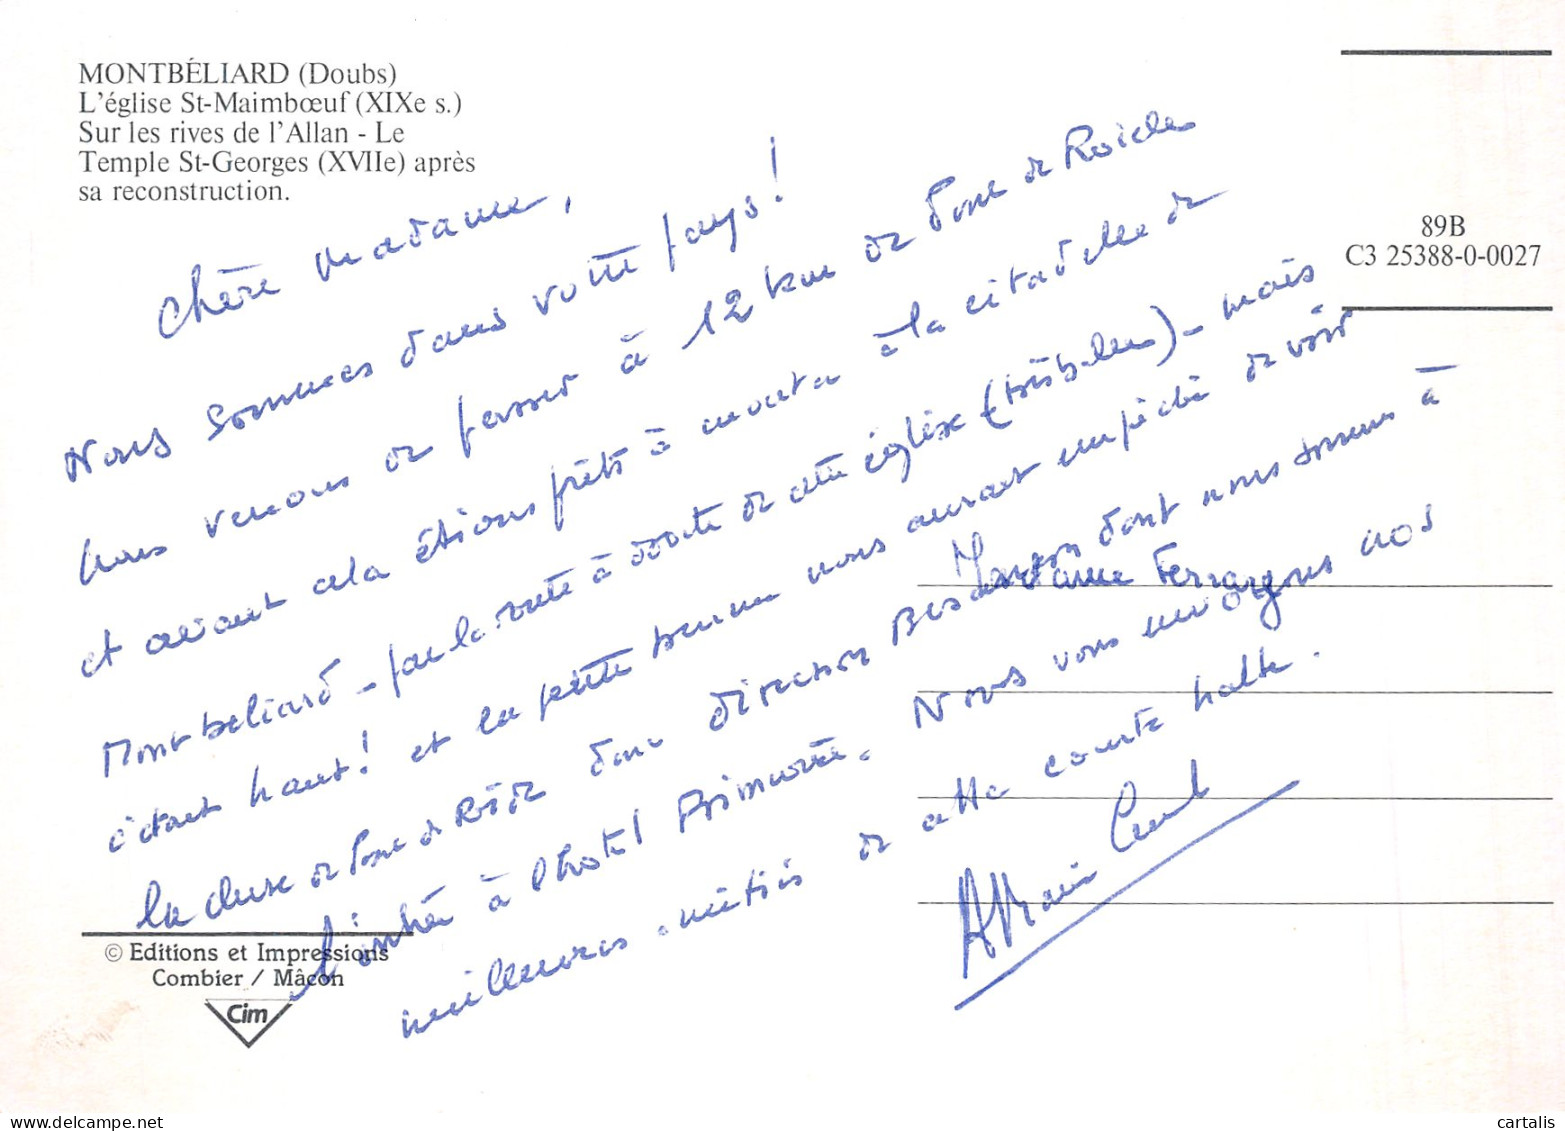 MONTBÉLIARD (Doubs)
L'église St-Maimbœuf (XIXe s.)
Sur les rives de l'Allan - Le
Temple St-Georges (XVIIe) après
sa reconstruction.
89B
C3 25388-0-0027
Chère Madame,
Nous sommes dans votre pays!
nous venons de passer à 12 km de Pont de Roide
et avant cela étions prêts à monter à la citadelle de
Montbéliard - par la route à droite de cette église (très belle) - mais
c'était haut! et la petite nous aurait empêché de voir
la cluse de Pont de Roide donc direction Besançon dont nous sommes à
l'entrée à l'hotel Primevère. Nous vous envoyons nos
meilleures amitiés de cette courte halte.
Madame Ferrary
© Editions et Impressions
Combier / Mâcon
Cim
cartalis
www.delcampe.net